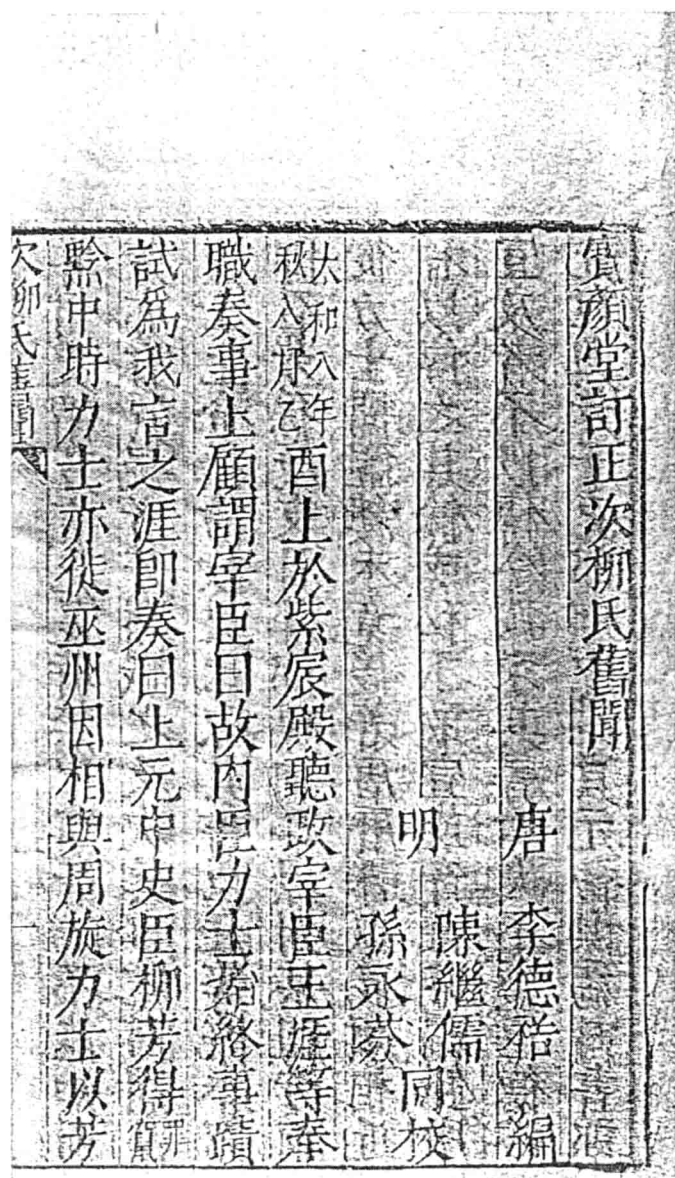 寶顏堂訂正次柳氏舊聞
唐 李德裕 編
明 陳繼儒 同校
孫永芬
太和八年秋八月乙酉上於紫宸殿聽政宰臣王涯等奉
職奏事上顧謂宰臣曰故內臣力士始終事蹟
試爲我言之涯卽奏曰上元中史臣柳芳得罪竄
黔中時力士亦從巫州因相與周旋力士以芳
次柳氏舊聞